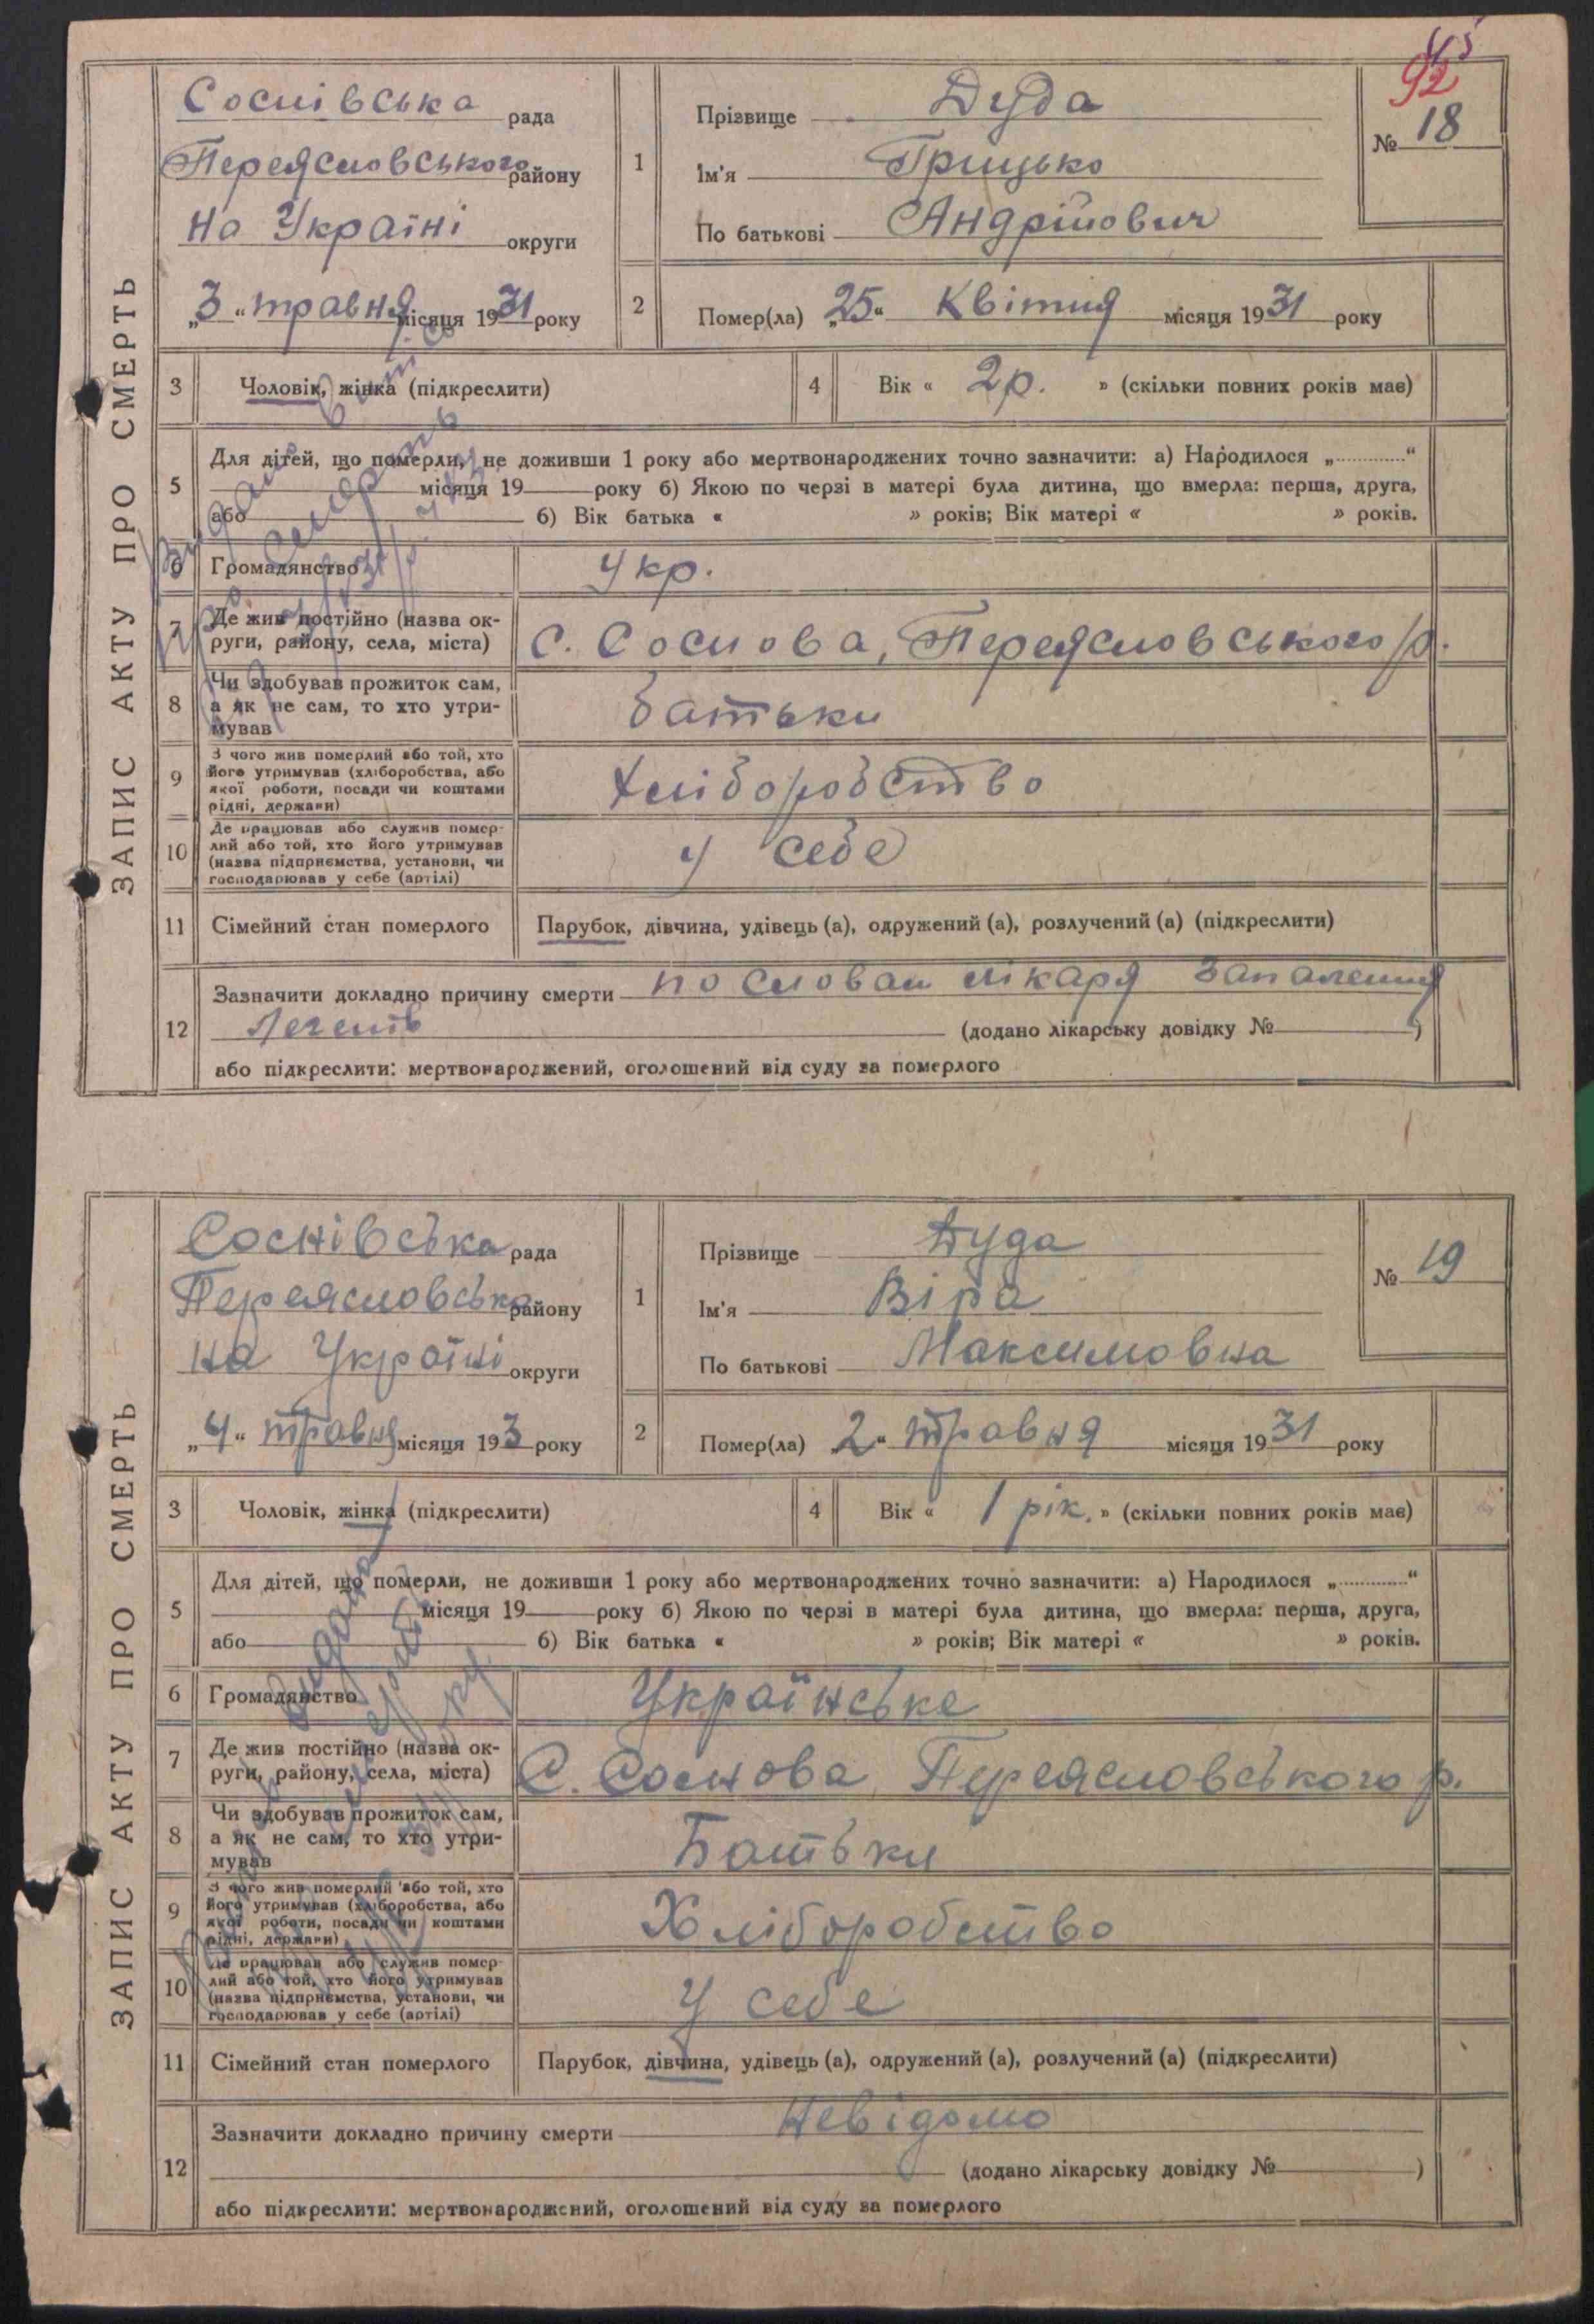 45
92
ЗАПИС АКТУ ПРО СМЕРТЬ
Соснівська рада
Переясловського району
на Україні округи
„3“ травня місяця 1931 року
1
Прізвище Дуда
Ім'я Грицько
По батькові Андрійович
№ 18
2
Помер(ла) „25“ Квітня місяця 1931 року
3 Чоловік, жінка (підкреслити)
4 Вік « 2 р. » (скільки повних років має)
5
Для дітей, що померли, не доживши 1 року або мертвонароджених точно зазначити: а) Народилося „............“
місяця 19 року б) Якою по черзі в матері була дитина, що вмерла: перша, друга,
або б) Вік батька « » років; Вік матері « » років.
6 Громадянство Укр.
7 Де жив постійно (назва ок-
руги, району, села, міста) с. Соснова, Переясловського р.
8 Чи здобував прожиток сам,
а як не сам, то хто утри-
мував батьки
9 З чого жив померлий або той, хто
його утримував (хліборобства, або
якої роботи, посади чи коштами
рідні, держави) Хліборобство
10 Де працював або служив помер-
лий або той, хто його утримував
(назва підприємства, установи, чи
господарював у себе (артілі) у себе
11 Сімейний стан померлого Парубок, дівчина, удівець (а), одружений (а), розлучений (а) (підкреслити)
12
Зазначити докладно причину смерти по словам лікаря запалення
Легенів (додано лікарську довідку № )
або підкреслити: мертвонароджений, оголошений від суду за померлого
ЗАПИС АКТУ ПРО СМЕРТЬ
Соснівська рада
Переясловська району
на Україні округи
„4“ травня місяця 193 3 року
1
Прізвище Дуда
Ім'я Віра
По батькові Максимовна
№ 19
2
Помер(ла) „2“ травня місяця 1931 року
3 Чоловік, жінка (підкреслити)
4 Вік « 1 рік. » (скільки повних років має)
5
Для дітей, що померли, не доживши 1 року або мертвонароджених точно зазначити: а) Народилося „............“
місяця 19 року б) Якою по черзі в матері була дитина, що вмерла: перша, друга,
або б) Вік батька « » років; Вік матері « » років.
6 Громадянство Українське
7 Де жив постійно (назва ок-
руги, району, села, міста) С. Соснова Переясловського р.
8 Чи здобував прожиток сам,
а як не сам, то хто утри-
мував Батьки
9 З чого жив померлий або той, хто
його утримував (хліборобства, або
якої роботи, посади чи коштами
рідні, держави) Хліборобство
10 Де працював або служив помер-
лий або той, хто його утримував
(назва підприємства, установи, чи
господарював у себе (артілі) у себе
11 Сімейний стан померлого Парубок, дівчина, удівець (а), одружений (а), розлучений (а) (підкреслити)
12
Зазначити докладно причину смерти Невідомо
(додано лікарську довідку № )
або підкреслити: мертвонароджений, оголошений від суду за померлого